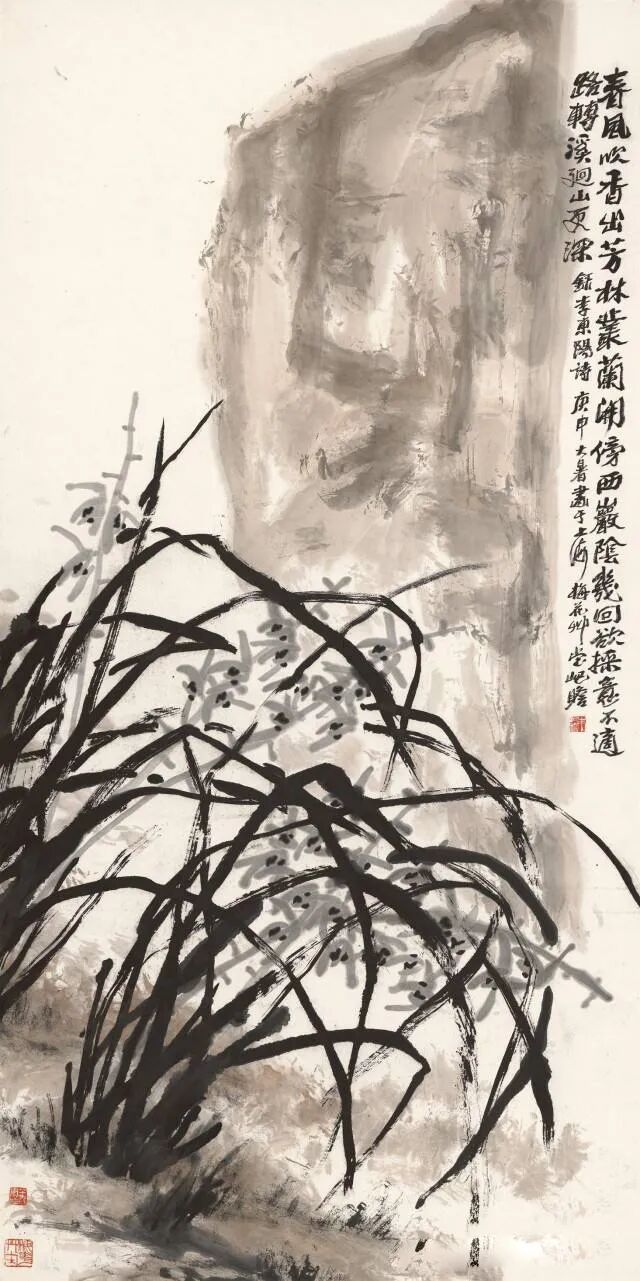 春風吹香出芳林叢蘭開傍西巖陰幾回欲採意不適
路轉溪迴山更深 錄李東陽詩 庚申大暑畫于上海 梅花草堂